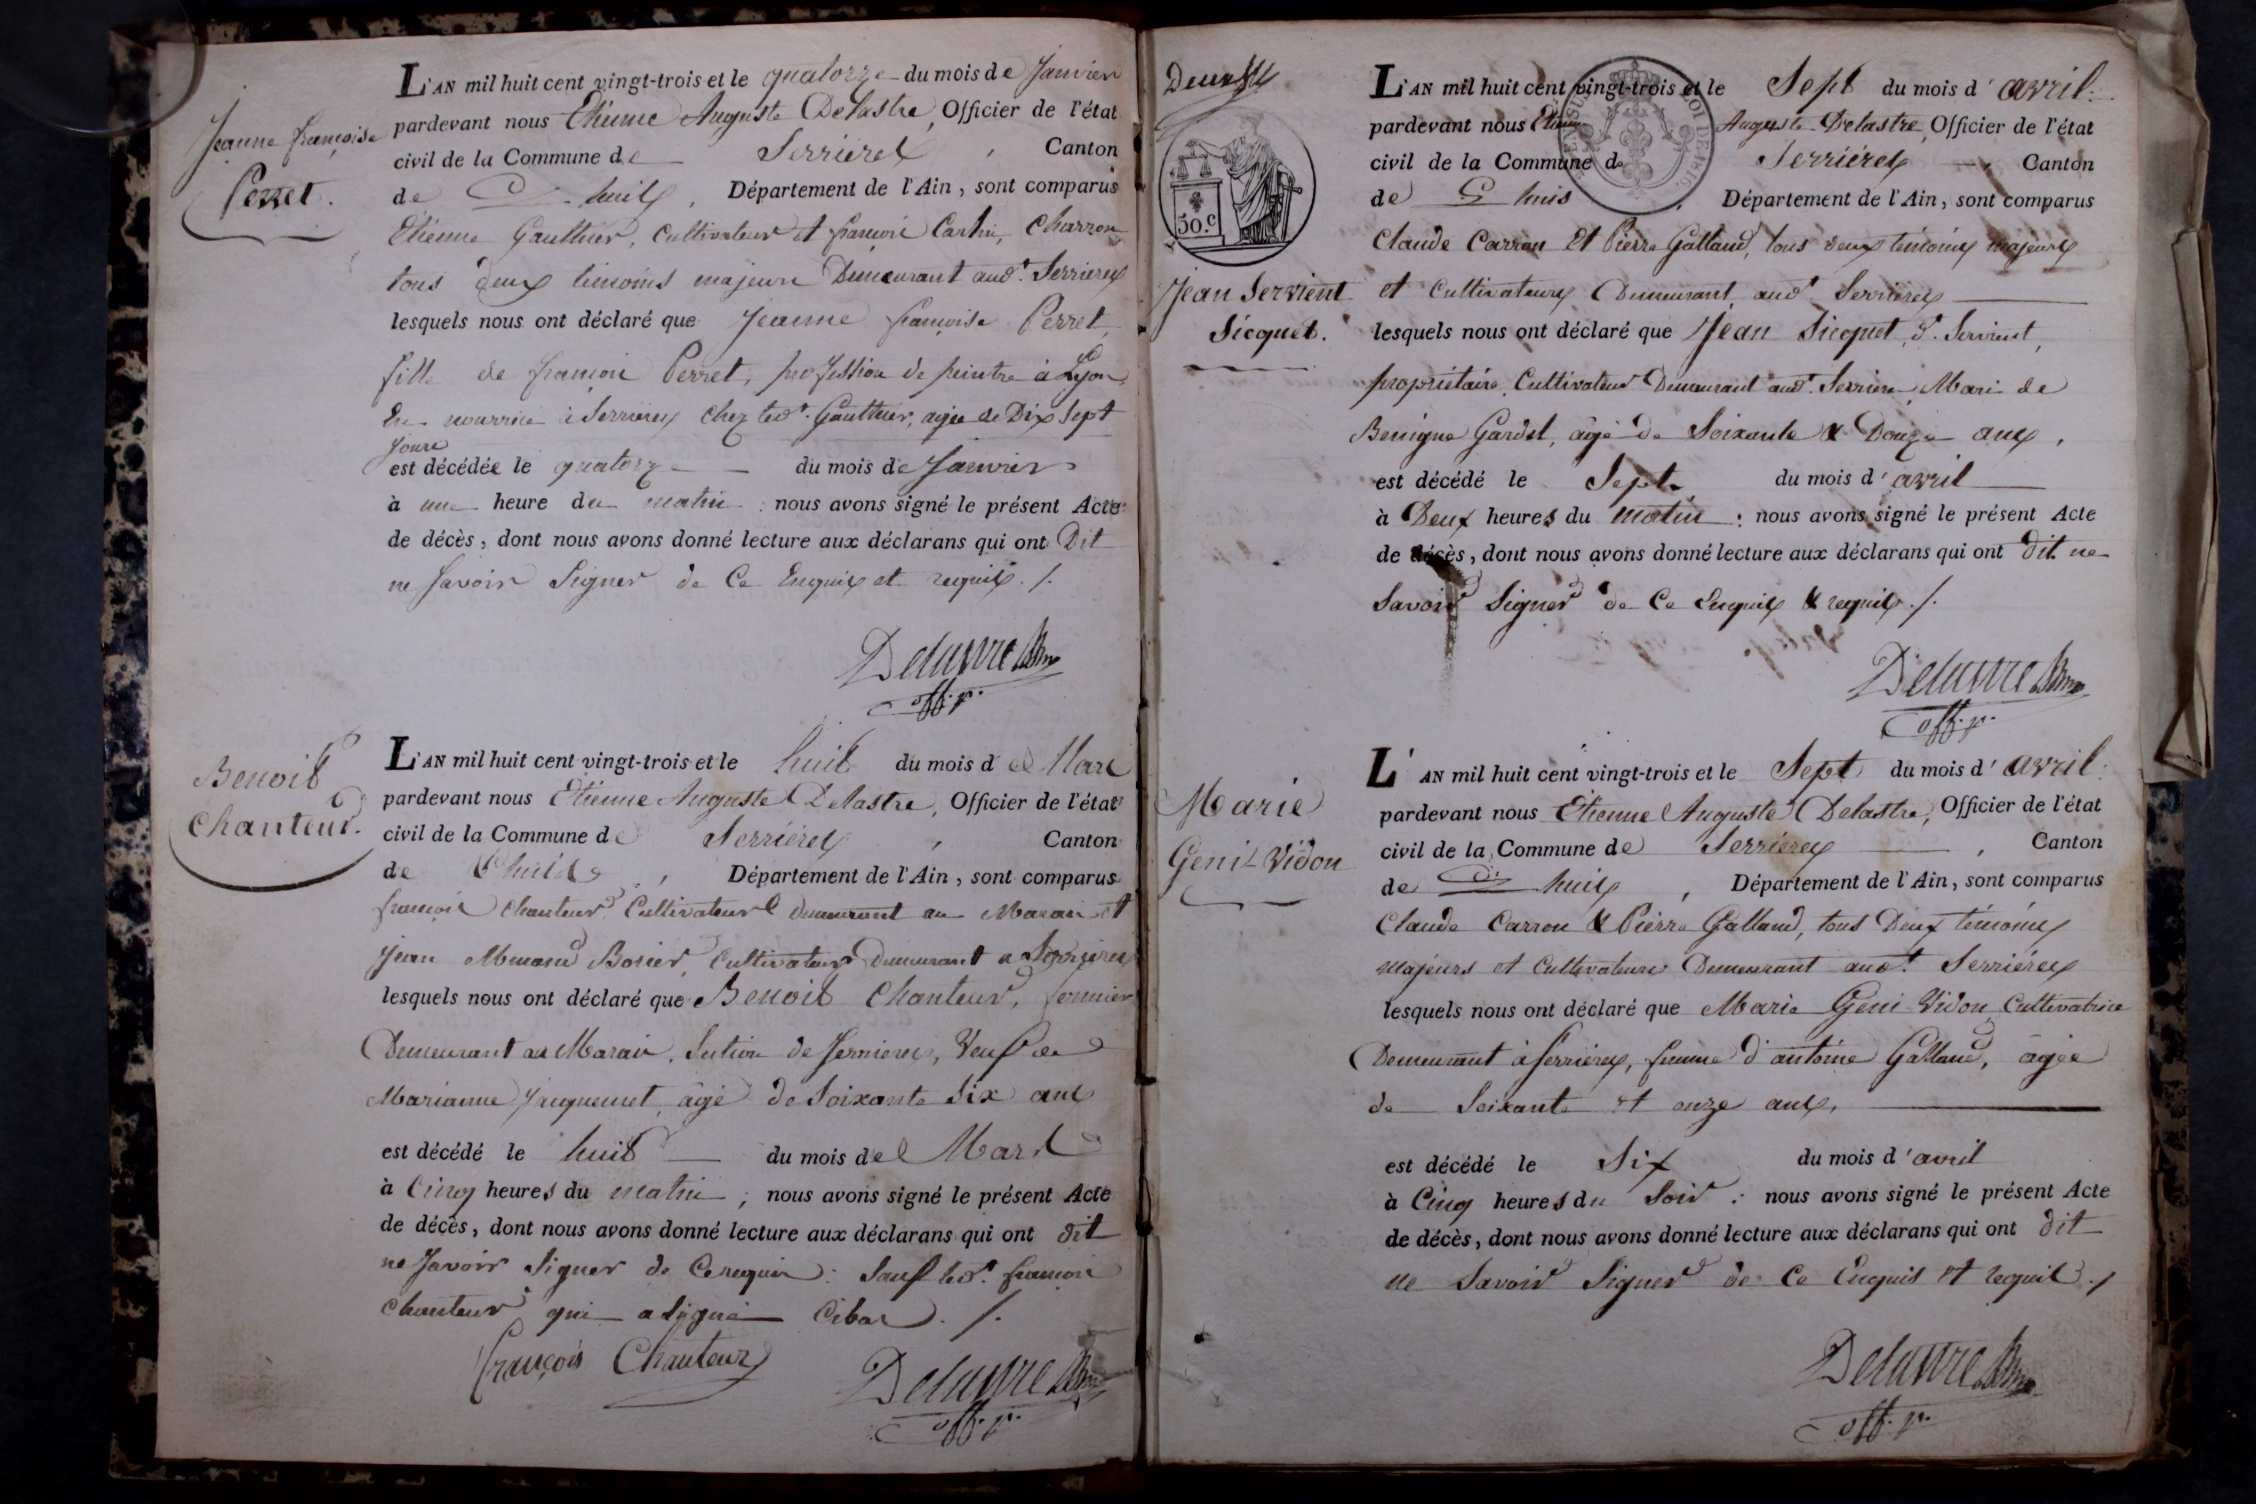 Jeanne françoise
Perret.
L'AN mil huit cent vingt-trois et le quatorze du mois de Janvier
pardevant nous Etienne Auguste Delastre, Officier de l'état
civil de la Commune de Serrieres, Canton
de L'huis, Département de l'Ain, sont comparus
Etienne Gauthier, Cultivateur et françois Cartin, Charron
tous deux temoins majeurs Demeurant aud.t Serrieres
lesquels nous ont déclaré que Jeanne françoise Perret,
fille de françois Perret, profession de peintre à Lyon,
En nourrice à Serrieres chez led.t Gauthier, agée de Dix Sept
Jours
est décédée le quatorze du mois de Janvier
à une heure du matin : nous avons signé le présent Acte
de décès, dont nous avons donné lecture aux déclarans qui ont Dit
ne Savoir Signer de Ce Enquis et requis ./.
Delastre
off. p.
Benoit
Chanteur.
L'AN mil huit cent vingt-trois et le huit du mois de Mars
pardevant nous Etienne Auguste Delastre, Officier de l'état
civil de la Commune de Serriéres, Canton
de L'huis, Département de l'Ain, sont comparus
françois Chanteur, Cultivateur demeurant au Marais et
Jean Bosier, Cultivateur Demeurant a Serrieres
lesquels nous ont déclaré que Benoit Chanteur, fermier
Demeurant au Marais, Section de Serrieres, Veuf de
Marianne Juquemet, âgé de Soixante Six ans
est décédé le huit du mois de Mars
à Cinq heures du matin ; nous avons signé le présent Acte
de décès, dont nous avons donné lecture aux déclarans qui ont dit
ne Savoir Signer de Ce requis : Sauf led.t françois
Chanteur qui a Signé Cibas ./.
françois Chanteur
Delastre
off. p.
50.c
Jean Servient
Sicquet.
L'AN mil huit cent vingt-trois et le Sept du mois d'avril
pardevant nous Etienne Auguste Delastre, Officier de l'état
civil de la Commune de Serriéres, Canton
de L'huis, Département de l'Ain, sont comparus
Claude Carron Et Pierre Galland, tous deux temoins majeurs
et Cultivateurs Demeurant aud.t Serrieres
lesquels nous ont déclaré que Jean Sicquet, d.t Servient,
propriétaire Cultivateur Demeurant aud.t Serriere, Mari de
Benigne Gardet, âgé de Soixante & Douze ans,
est décédé le Sept du mois d'avril
à Deux heures du matin : nous avons signé le présent Acte
de décès, dont nous avons donné lecture aux déclarans qui ont dit ne
Savoir Signer de Ce Enquis & requis ./.
Delastre
off. p.
Marie
Geni-Vidon
L'AN mil huit cent vingt-trois et le Sept du mois d'avril
pardevant nous Etienne Auguste Delastre, Officier de l'état
civil de la Commune de Serriéres, Canton
de L'huis, Département de l'Ain, sont comparus
Claude Carron & Pierre Galland, tous Deux témoins
majeurs et Cultivateurs Demeurant aud.t Serriéres
lesquels nous ont déclaré que Marie Geni-Vidon Cultivatrice
Demeurant à Serriéres, femme d'antoine Galland, âgée
de Soixante et onze ans,
est décédé le Six du mois d'avril
à Cinq heures du Soir : nous avons signé le présent Acte
de décès, dont nous avons donné lecture aux déclarans qui ont dit
ne Savoir Signer de Ce Enquis et requis ./
Delastre
off. p.